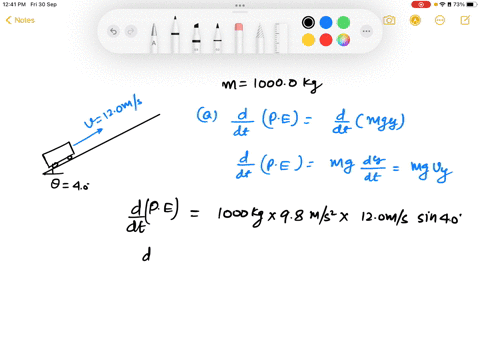 12:41 PM Fri 30 Sep
73%
Notes
m = 1000.0 kg
v = 12.0 m/s
(a) d/dt (P.E) = d/dt (mgy)
d/dt (P.E) = mg dy/dt = mg vy
θ = 4.0°
d/dt (P.E) = 1000 kg × 9.8 m/s² × 12.0 m/s sin 4.0°
d